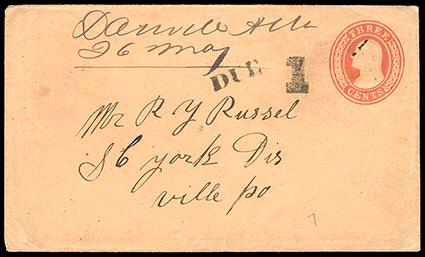 Danville Ala
26 May
DUE 1
THREE
CENTS
Mr R Y Russel
S C york Dis
ville po